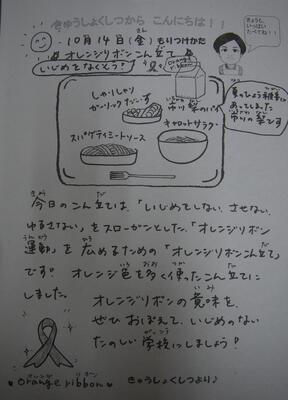 きゅうしょくしつから こんにちは！！
10月14日(金)もりつけかた
オレンジリボンこん立て
いじめをなくそう！
きょうも
いっぱい
たべてね！！
しゃかしゃか
ガーリックだいず
市川梨のパイ
キャロットサラダ
スパゲティミートソース
あってました
市川の梨です
今日のこん立ては、「いじめをしない、させない、
ゆるさない」をスローガンとした、「オレンジリボン
運動」を広めるための「オレンジリボンこん立て」
です。オレンジ色を多く使ったこん立てに
しました。 オレンジリボンの意味を、
ぜひおぼえて、いじめのない
たのしい学校にしましょう！
orange ribbon
きゅうしょくしつより♪